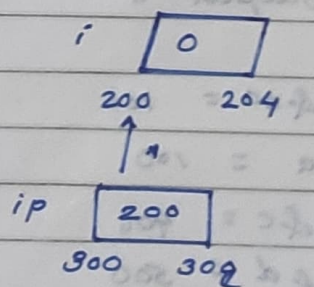 i 0
200 204
*
ip 200
300 308